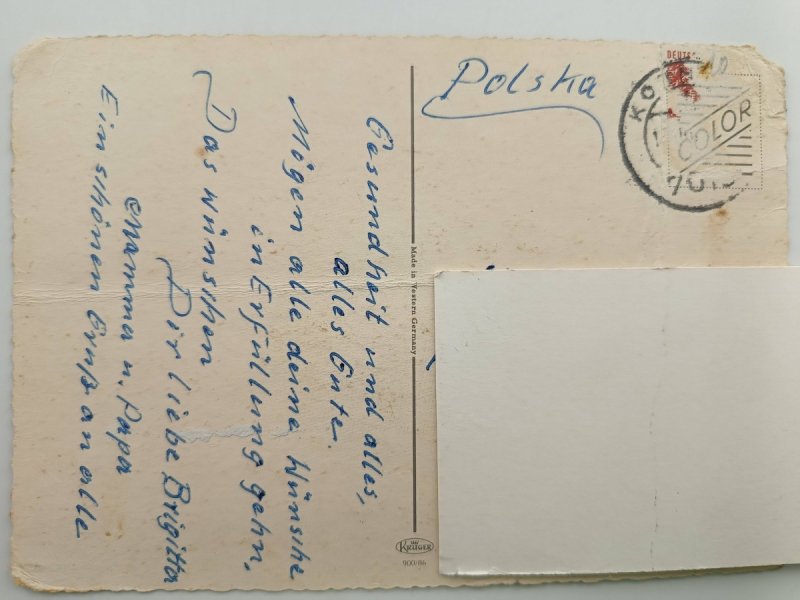 Polska
DEUTS
KO
COLOR
Gesundheit und alles,
alles Gute.
Mögen alle deine Wünsche
in Erfüllung gehn,
Das wünschen
Dir liebe Brigitta
Mamma u. Papa
Ein schönen Gruß an alle
Made in Western Germany
KRÜGER
900/86